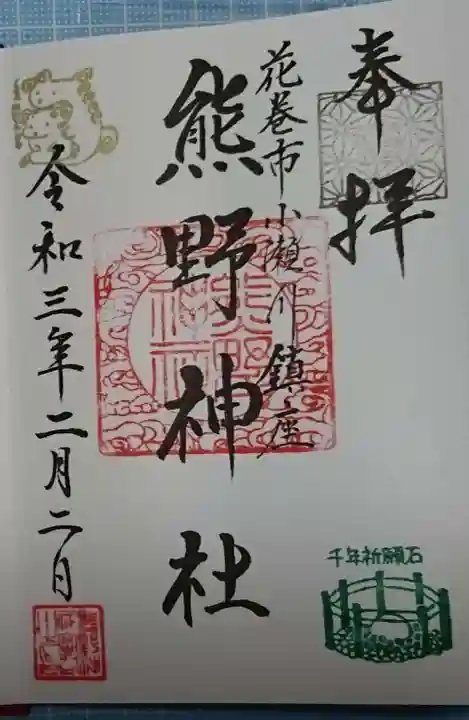 奉拝
花巻市小瀬川鎮座
熊野神社
令和三年二月二日
千年祈願石